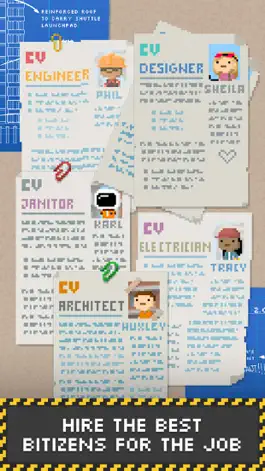 REINFORCED ROOF
TO CARRY SHUTTLE
LAUNCHPAD.
CV
ENGINEER
PHIL
CV
DESIGNER
SHEILA
CV
JANITOR
KARL
CV
ELECTRICIAN
TRACY
CV
ARCHITECT
HUXLEY
HIRE THE BEST
BITIZENS FOR THE JOB